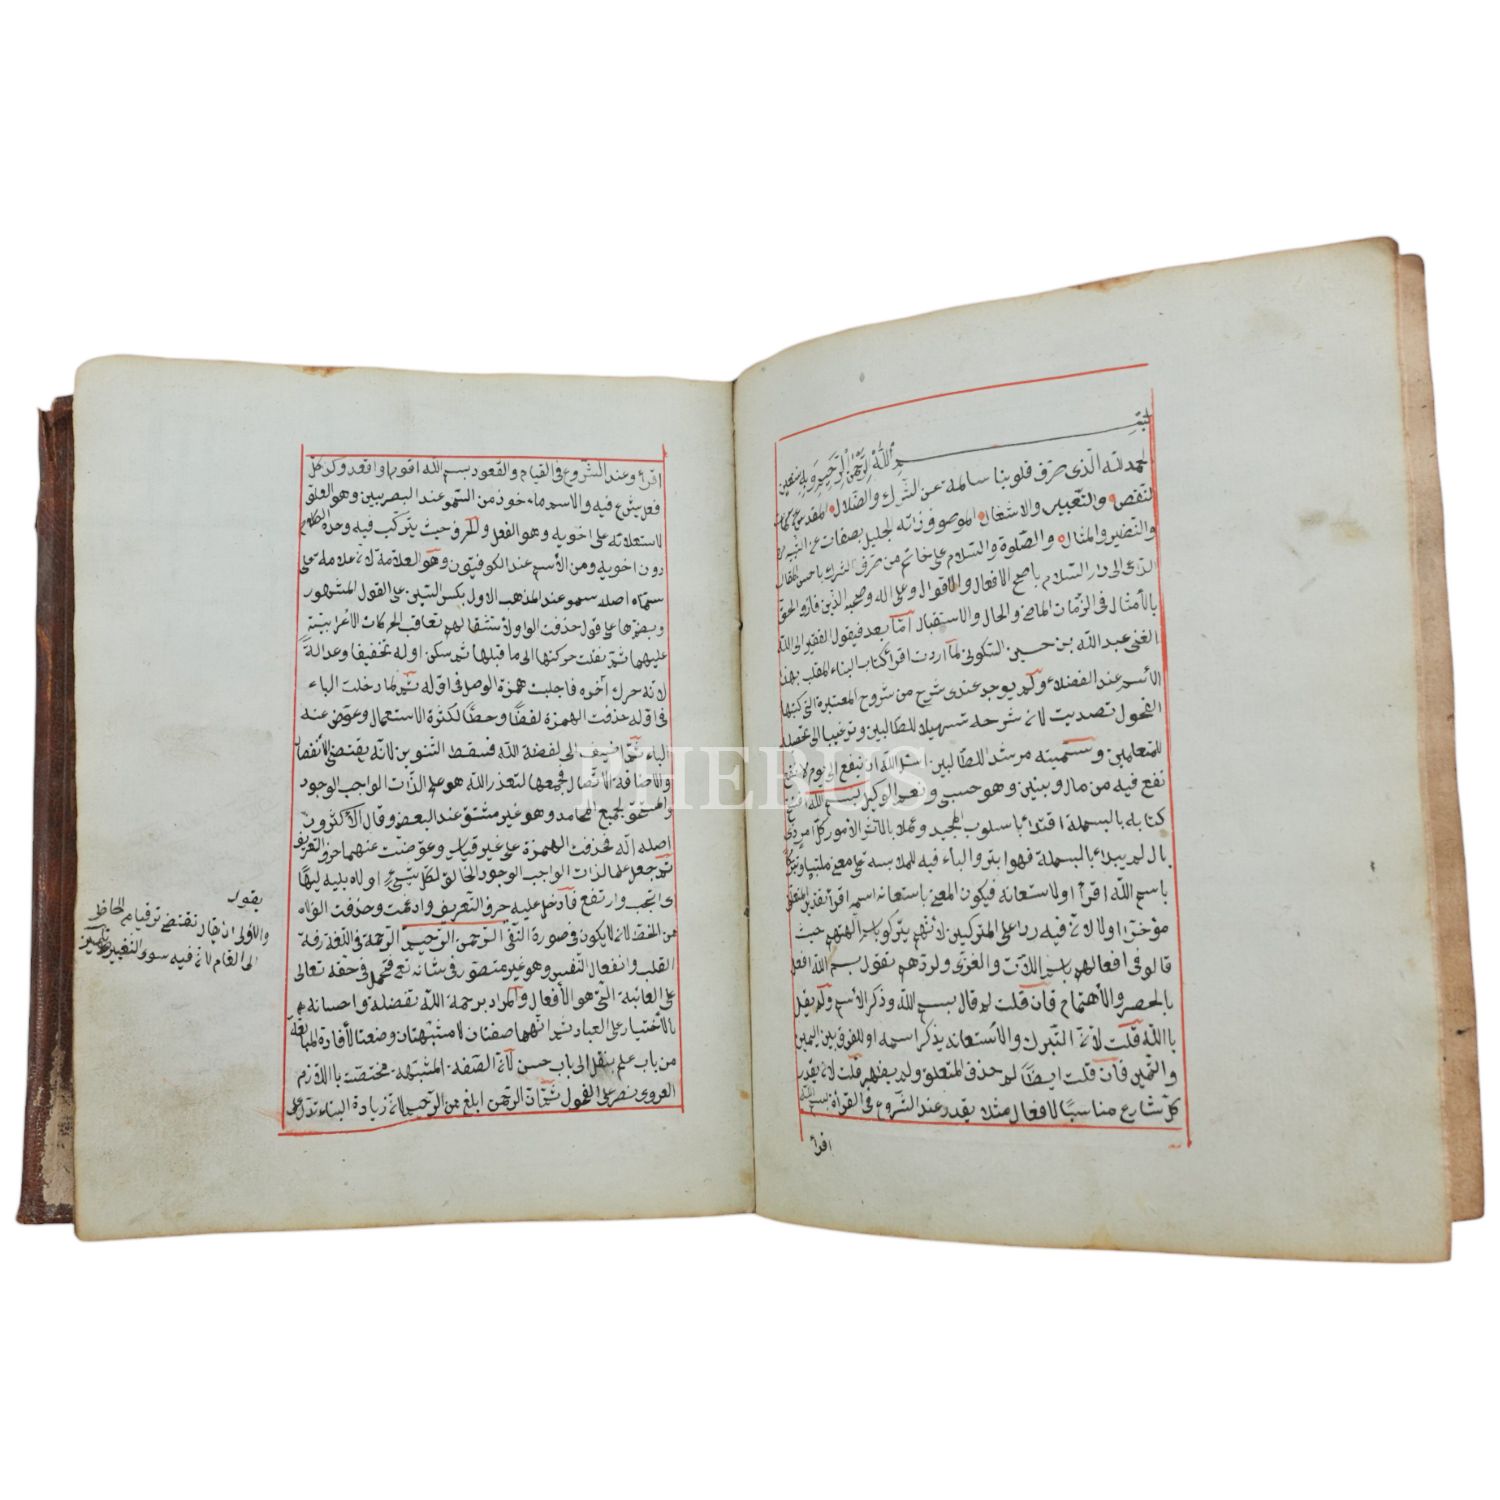 بسم الله الرحمن الرحيم وبه نستعين
الحمد لله الذى صرف قلوبنا سالمة عن الشرك والضلال المقدس عن
النقص والتغيير والاشغال الموصوف ذاته الجليل بصفات عن الشبه
والنضير والمثال والصلوة والسلام على خاتم من صرف الشرك باحسن المقال
الداعى الى دار السلام باصح الافعال والاقوال وعلى اله وصحبه الذين فازوا الحق
بالأمثال فى الزمان الماضى والحال والاستقبال أما بعد فيقول الفقير الى الله
الغنى عبد الله بن حسين السكونى لما اردت اقرأ كتاب البناء الملقب بهذا
الأسم عند الفضلاء ولم يوجد عندى شرح من شروح المعتبرة التى كتبها
الفحول تصديت لانه شرحه تسهيلا للطالبين وترغيبا الى تحصيله
للمتعلمين وسميته مرشد للطالبين اسئل الله ان ينفع الى يوم لا ينفع
نفع فيه من مال وبنين وهو حسبى ونعم الوكيل بسم الله افتتح
كتابه بالبسملة اقتداء باسلوب المجيد وعملا بالاثر الأمور كل امر ذى
بال لم يبدء بالبسملة فهو ابتر والباء فيه للملابسة على معنى ملتبسا وتبركا
باسم الله اقرأ او لاستعانة فيكون المعنى باستعانة اسم اقرأ تقدير المتعلق
مؤخرا اولا لانه فيه ردا على المتركين لأنهم يتركو باسم الهتهم حيث
قالو فى افعالهم باسم اللآت والغزى ولردهم نقول بسم الله افعل
بالحصر والأهتمام فأن قلت لم قال بسم الله وذكر الأسم ولم يقل
باالله قلت لانه التبرك والأستعانة يذكر اسمه او للفرق بين اليمين
والتيمين فأن قلت ايضا لم حذف المتعلق ولم يظهر قلت لانه يقدر
كل شارع مناسبا لافعال مثلا يقدر عند الشروع فى القرأة بسم الله
اقرأ
اقرأ وعند الشروع فى القيام والقعود بسم الله اقوم واقعد وكذ كل
فعل يشرع فيه والاسم مأخوذ من السمو عند البصريين وهو العلو
لاستعلائه على اخويه وهو الفعل والحروف حيث يتركب فيه وحده الكلام
دون اخويه ومن الأسم عند الكوفيون وهو العلامة لانه علامة على
سماه اصله سمو عند المذهب الاول بكسر السين على القول المشهور
وبضمها على قول حذفت الواو لاستثقالهم تعاقب الحركات الأعرابية
عليهما ثم نقلت حركتها الى ما قبلها ثم سكن اوله تخفيفا وعدالة
لانه حرك آخره فاجلبت همزة الوصل فى اوله ثم لما دخلت الباء
فى اوله حذفت الهمزة لفظا وخطا لكثرة الاستعمال وعوض عنه
الباء ثم اضيف الى لفظة الله فسقط التنوين لانه يقتضى الأنفصال
والاضافة الاتصال فجمعها لتعذر الله هو علم الذات الواجب الوجود
والمستحق لجميع المحامد وهو غير مشتق عند البعض وقال الأكثرون
اصله اله فحذفت الهمزة على غير قياس وعوضت عنهما حرف التعريف
ثم جعل علما لذات الواجب الوجود الخالق لكل شىء او لاه يليه ليها
اى احتجب وارتفع فأدخل عليه حرف التعريف وادغمت وحذفت الواه
من الخط لانه لا يكون فى صورة النفى الرحمن الرحيم الرحمة فى اللغة رقة
القلب وانفعال النفس وهو غير متصور فى شانه تعالى فتحمل فى حقه تعالى
على الغائية التى هو الأفعال والمراد برحمة الله تفضله واحسانه
بالأختيار على العباد ثم انهما صفتان لا مشبهتان وضعتا لأفادة المبالغة
من باب علم بنقل الى باب حسن لانه الصفة المشبهة مختصة باالازم
الفروى نصر على القول شتان الرحمن ابلغ من الرحيم لانه زيادة البناء تدل على
يقول
والاولى الأيقال نقتضى ترقيا م الحاظ
الى القام لانه فيه سوء التعبير
PHEBUS